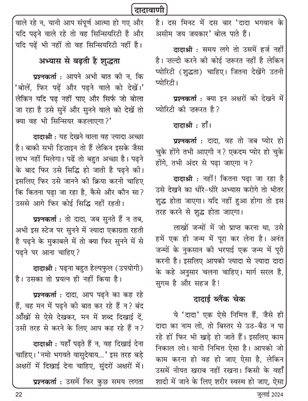 दादावाणी
वाले रहे न, यानी आप संपूर्ण आत्मा हो गए और
यदि पढ़ने वाले रहे तो वह सिन्सियरिटी है और
यदि पढ़ें भी नहीं तो वह सिन्सियरिटी नहीं है।
अभ्यास से बढ़ती है शुद्धता
प्रश्नकर्ता : आपने अभी बात की न, कि
'बोलें, फिर पढ़ें और पढ़ने वाले को देखें।'
लेकिन यदि पढ़ नहीं पाए और सिर्फ जो बोला
जा रहा है उसे सुनें और सुनने वाले को देखें तो
क्या वह भी सिन्सियर कहलाएगा?
दादाश्री : यह देखने वाला वह ज़्यादा अच्छा
है। बाकी सभी डिज़ाइन तो हैं लेकिन इसके जैसा
लाभ नहीं मिलेगा। पढ़ें तो बहुत अच्छा है। पढ़ने
के बाद फिर उसे सिद्धि हो जाती है पढ़ने की।
इसलिए फिर उसे जानने की क्रिया करनी चाहिए
कि कितना पढ़ा जा रहा है, कैसे और कौन सा?
उससे आगे फिर कोई सिद्धि नहीं रहती।
प्रश्नकर्ता : तो दादा, जब सुनते हैं न तब,
अभी इस स्टेज पर सुनने में ज़्यादा एकाग्रता रहती
है पढ़ने के मुकाबले में तो क्या फिर सुनने में से
पढ़ने पर आना चाहिए?
दादाश्री : पढ़ना बहुत हेल्पफुल (उपयोगी)
है। उसका तो प्रयत्न हो नहीं किया है।
प्रश्नकर्ता : दादा, आप पढ़ने का कह रहे
हैं, वह मन में पढ़ने की बात कर रहे हैं न? बंद
आँखों से ऐसे देखकर, मन में शब्द दिखाई दें,
उसी तरह से करने के लिए आप कह रहे हैं न?
दादाश्री : यहाँ पढ़ते हैं न, वह दिखाई देना
चाहिए। 'नमो भगवते वासुदेवाय...' इस तरह बड़े
अक्षरों में दिखाई देना चाहिए, सुंदर अक्षरों में।
प्रश्नकर्ता : उसमें फिर कुछ समय लगता
है। दस मिनट में दस बार 'दादा भगवान के
असीम जय जयकार' बोल पाते हैं।
दादाश्री : समय लगे तो उसमें हर्ज नहीं
है। जल्दी करने की कोई ज़रूरत नहीं है लेकिन
प्योरिटी (शुद्धता) चाहिए। जितना देखेंगे उतनी
प्योरिटी।
प्रश्नकर्ता : क्या इन अक्षरों को देखने में
प्योरिटी की ज़रूरत है?
दादाश्री : हाँ।
प्रश्नकर्ता : दादा, वह तो जब प्योर हो
चुके होंगे तभी आएगी न? एकदम प्योर हो चुके
होंगे, तभी अंदर से पढ़ा जाएगा न?
दादाश्री : नहीं! कितना पढ़ा जा रहा है
उसे देखने का धीरे-धीरे अभ्यास करोगे तो भीतर
शुद्ध होता जाएगा। यदि नहीं हुआ होगा तो इस
तरह करने से शुद्ध होता जाएगा।
लाखों जन्मों में जो प्राप्त करना था, उसे
हमें एक ही जन्म में पूरा कर लेना है। अनंत
जन्मों के नुकसान की भरपाई एक जन्म में पूरी
करनी है। इसलिए आपको ज़्यादा से ज़्यादा दादा
के कहे अनुसार चलना चाहिए। मार्ग सरल है,
सुगम है और सहज है!
दादाई ब्लैंक चेक
ये 'दादा' एक ऐसे निमित्त हैं, जैसे हो
दादा का नाम लो, तो बिस्तर से उठ-बैठ न पा
रहे हों फिर भी खड़े हो जाते हैं। इसलिए काम
निकाल लो। यानी निमित्त ऐसा है। आपको जो
काम करना हो वह हो जाए ऐसा है, लेकिन
उसमें नीयत खराब नहीं रखना। किसी के यहाँ
शादी में जाने के लिए शरीर स्वस्थ हो जाए, ऐसा
22
जुलाई 2024